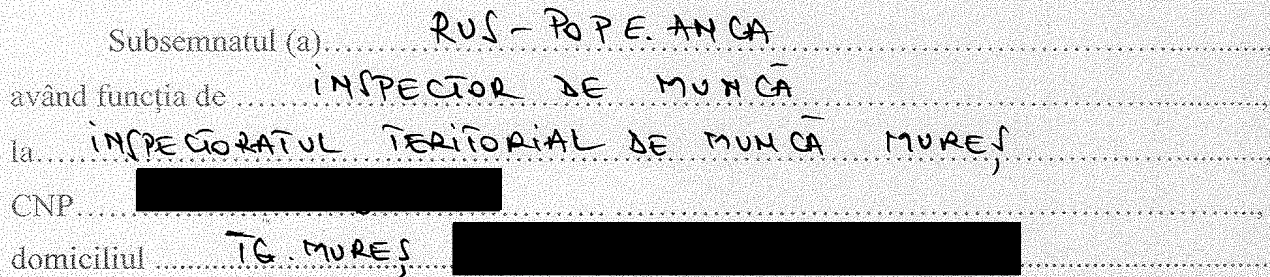 Subsemnatul (a).......... RUS - POP E. ANCA ..........
având funcția de .......... INSPECTOR DE MUNCĂ ..........,
la.......... INSPECTORATUL TERITORIAL DE MUNCĂ MUREȘ ..........
CNP..........,
domiciliul .......... TG. MUREȘ ..........